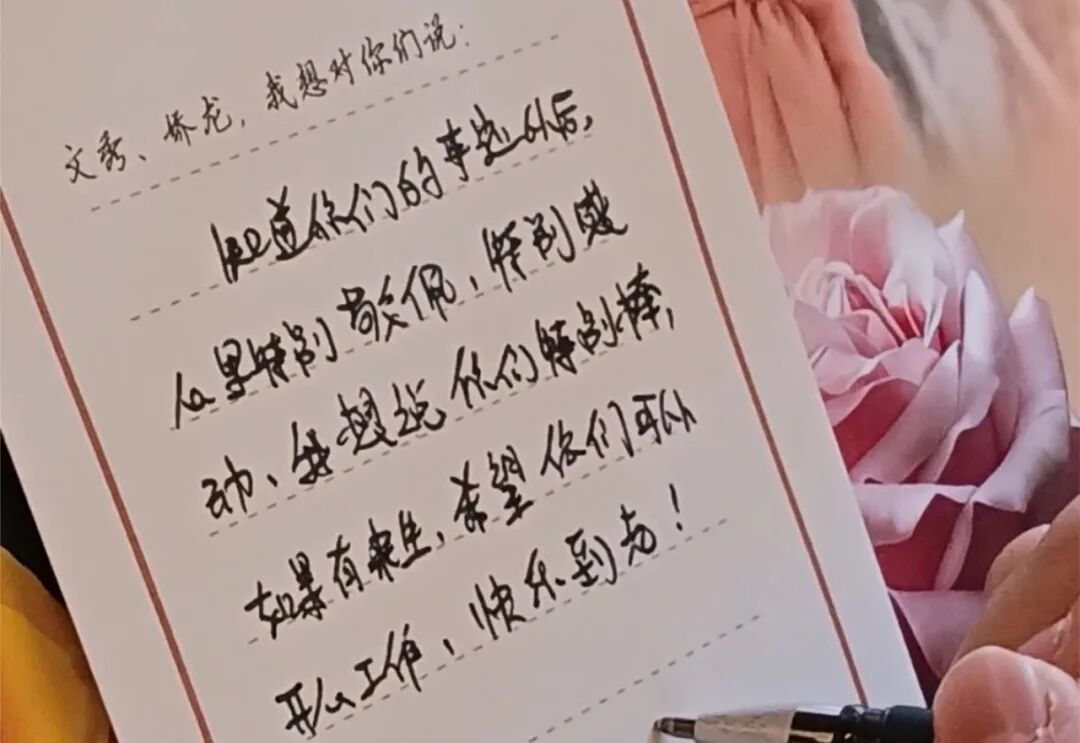 文秀、娇龙，我想对你们说：
知道你们的事迹以后，
心里特别敬佩、特别感
动、我想说你们特别棒，
如果有来生，希望你们可以
开心工作，快乐到老！